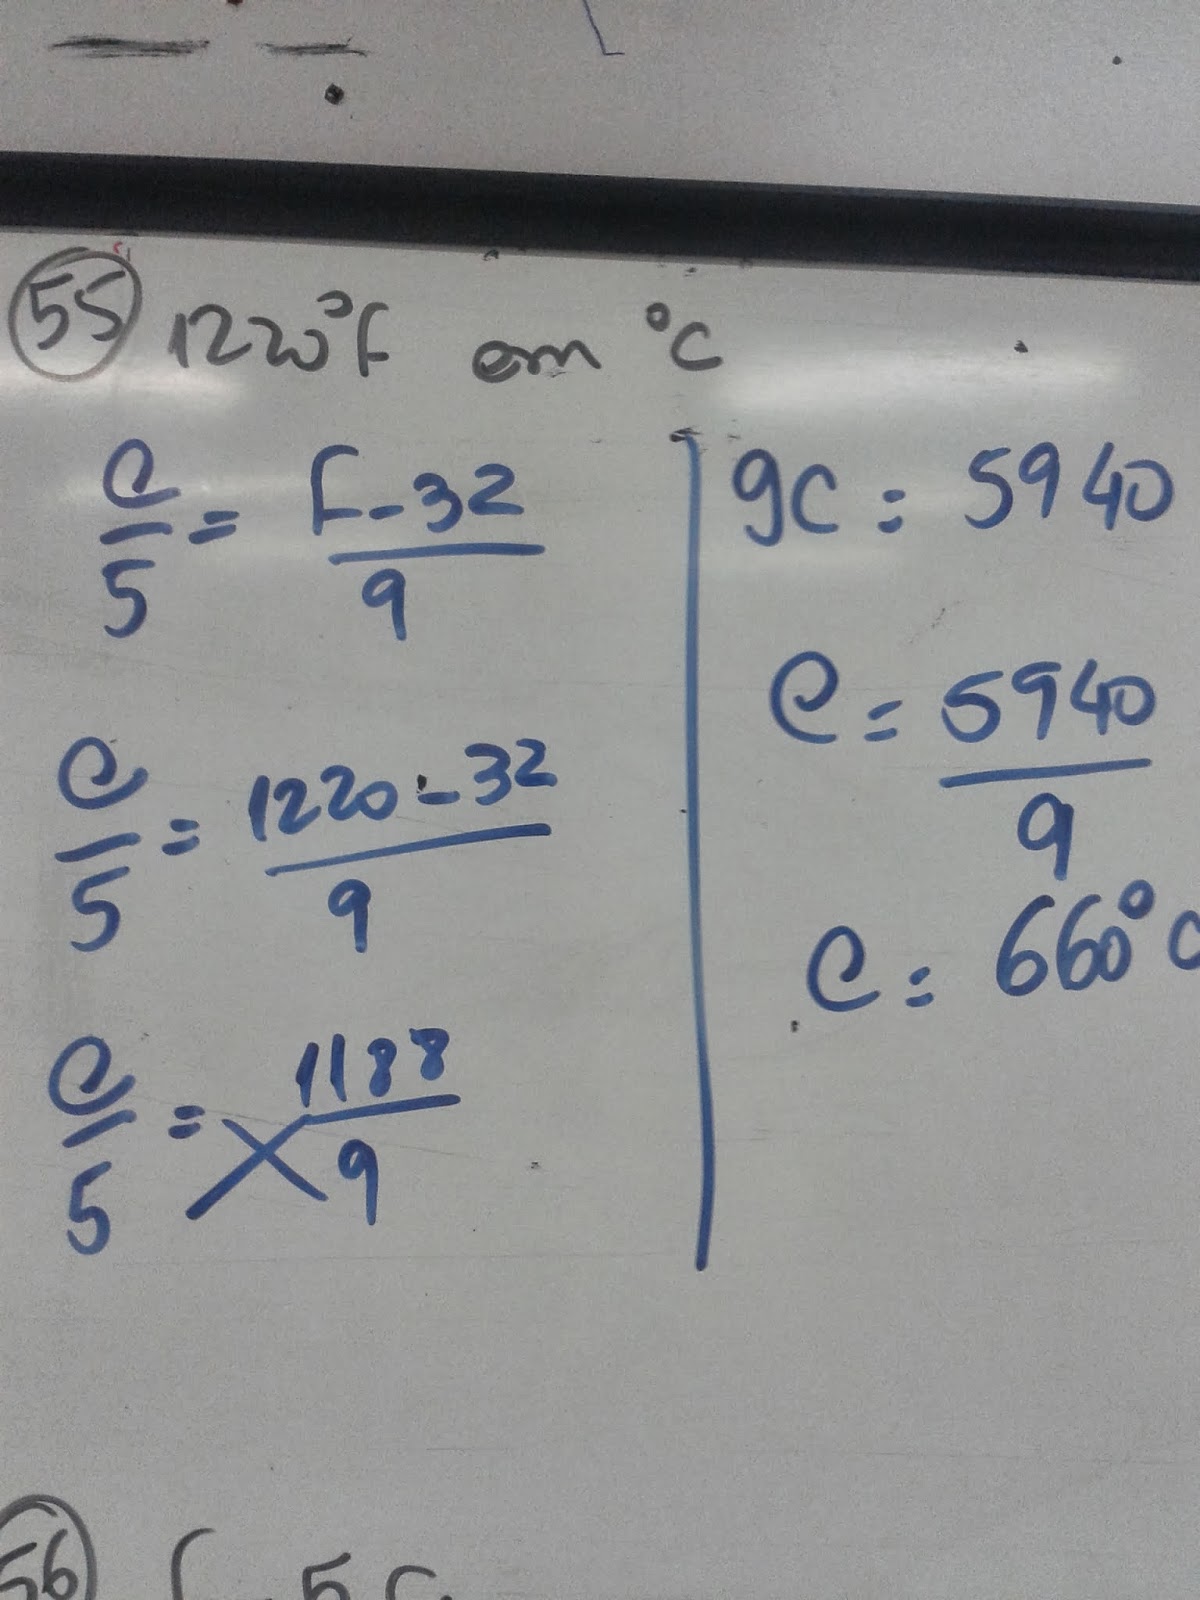 55 1220°F em °C
C/5 = F - 32/9
C/5 = 1220 - 32/9
C/5 = 1188/9
9C = 5940
C = 5940/9
C = 660°C
56 F 5C